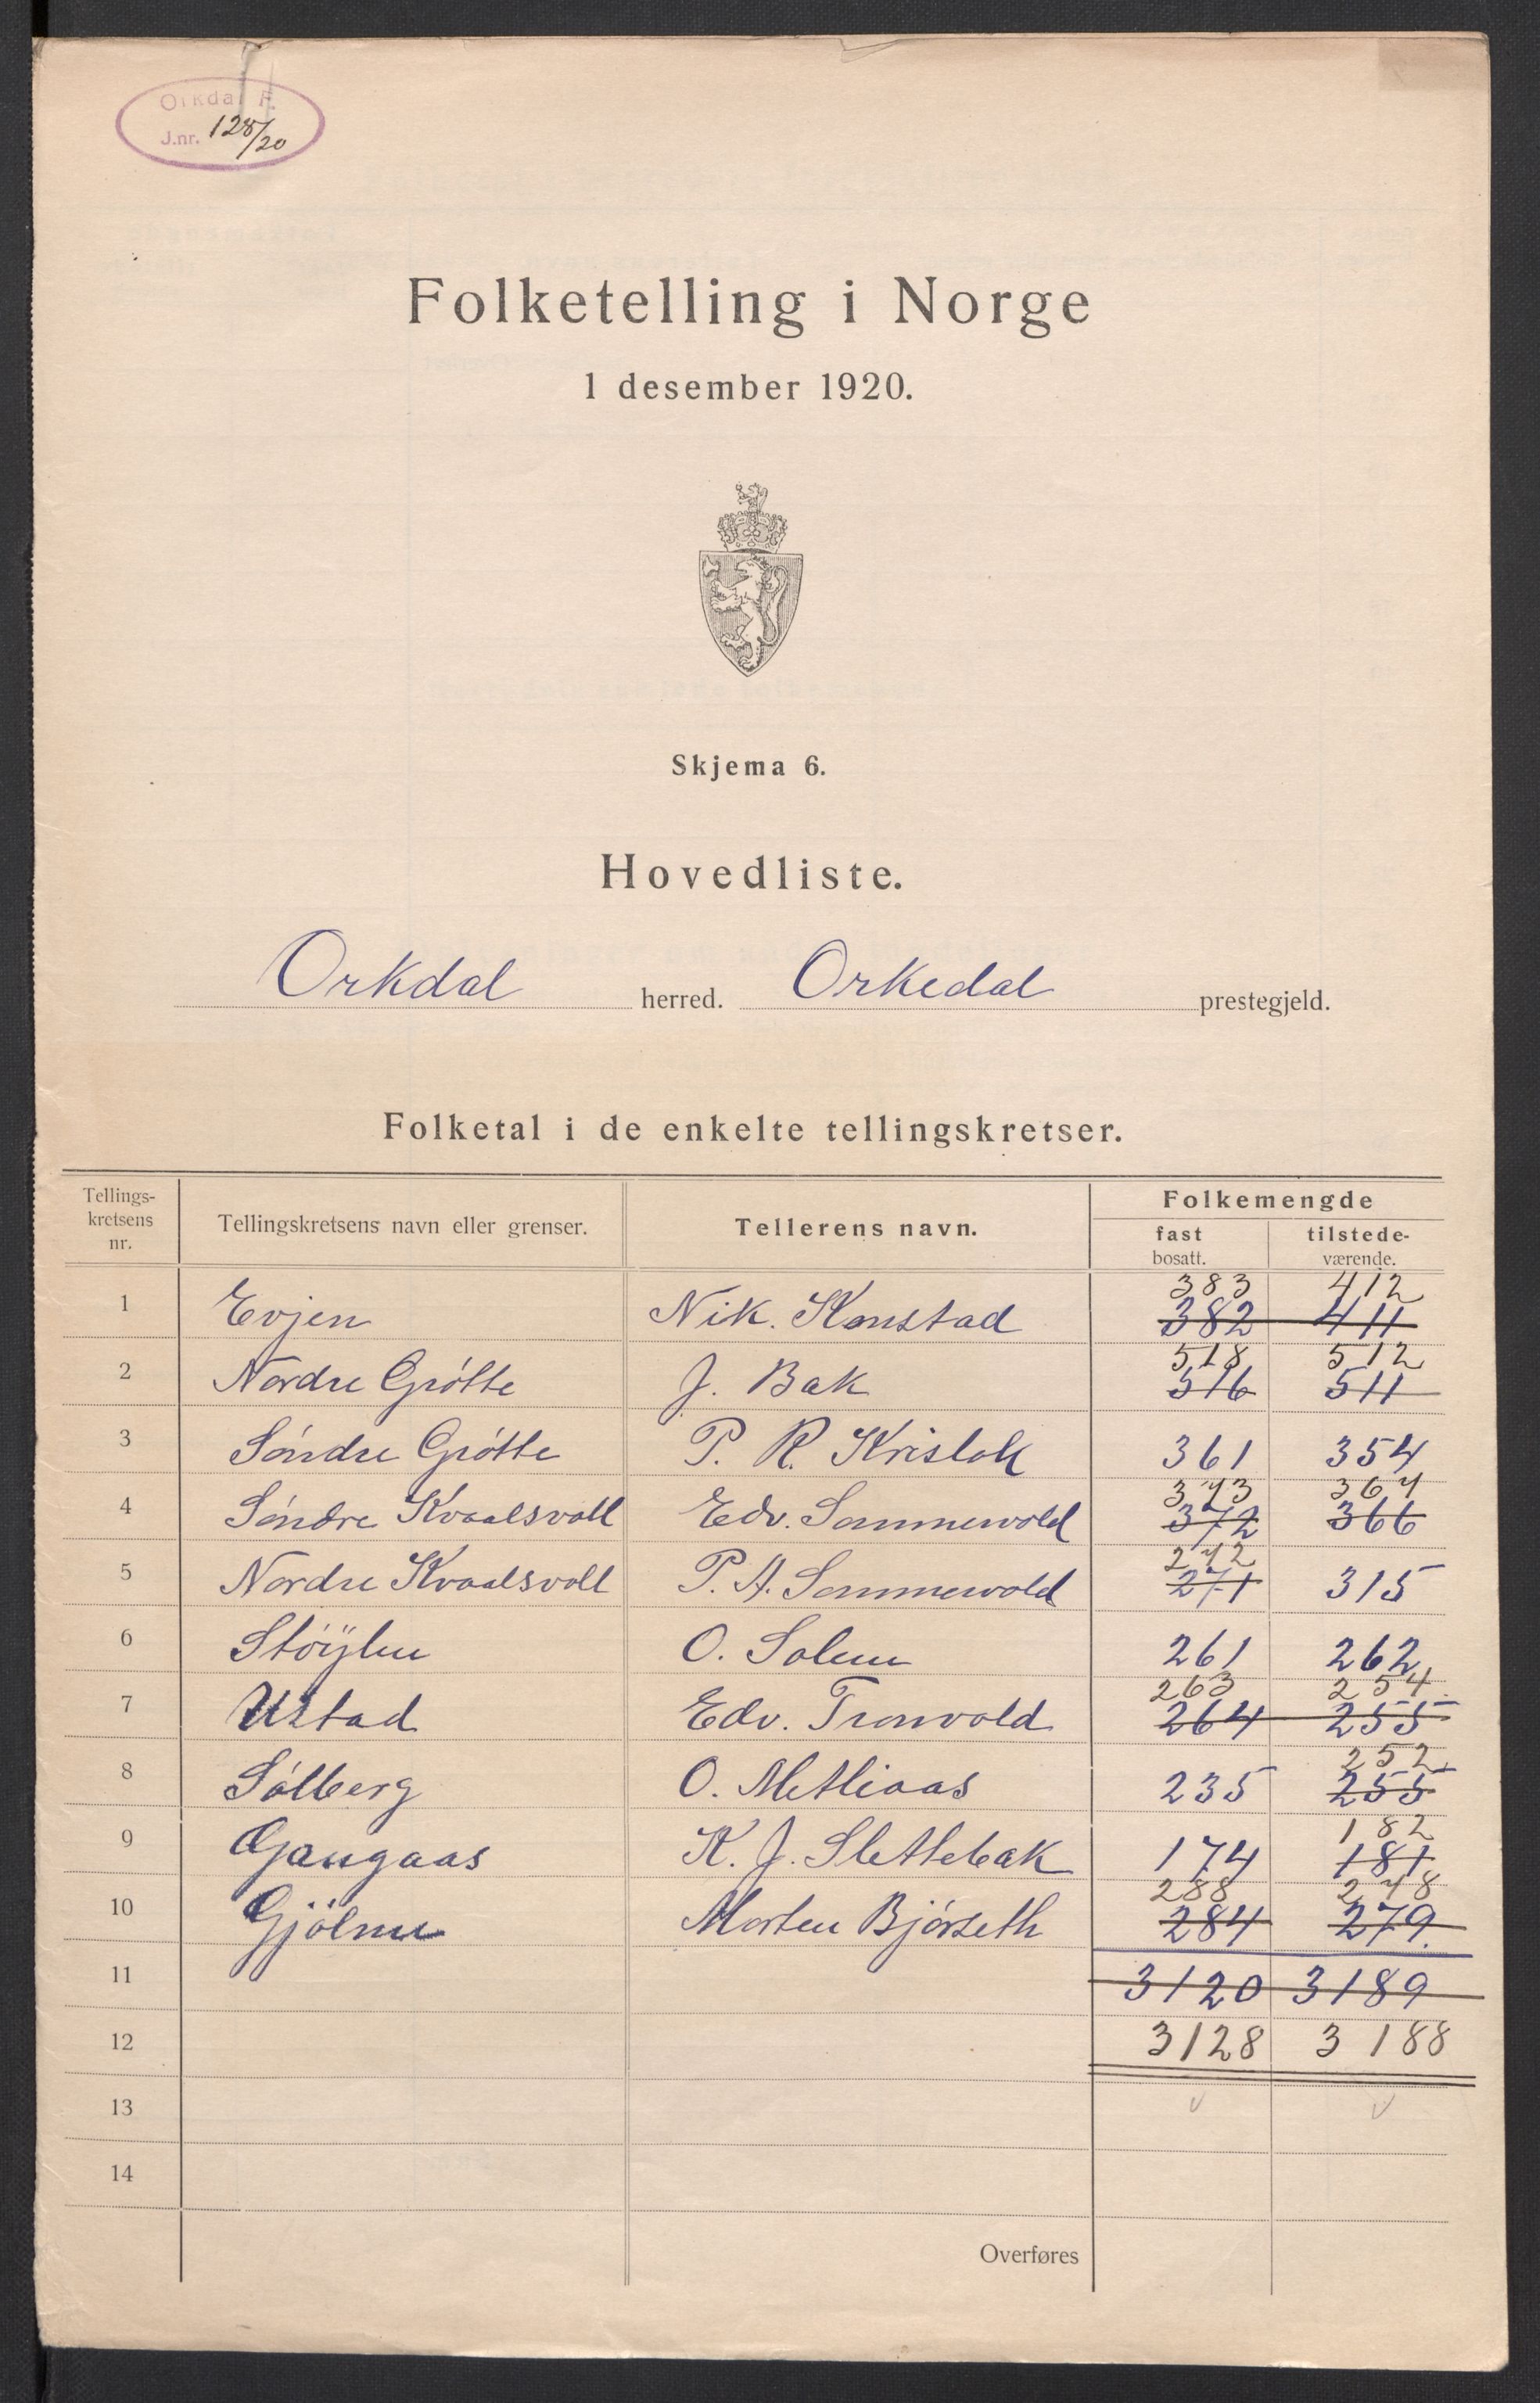 Orkdal F.
J.nr. 128/20
Folketelling i Norge
1 desember 1920.
Skjema 6.
Hovedliste.
Orkdal herred. Orkedal prestegjeld.
Folketal i de enkelte tellingskretser.
Tellings-
kretsens
nr.
Tellingskretsens navn eller grenser.
Tellerens navn.
Folkemengde
fast
bosatt.
tilstede-
værende.
383 412
1 Evjen Nik. Konstad 382 411
518 512
2 Nordre Grötte J. Bak 516 511
3 Söndre Grötte P. R. Kristok 361 354
373 367
4 Söndre Kvaalsvoll Edv. Sommervold 372 366
272
5 Nordre Kvaalsvoll P. A. Sommervold 271 315
6 Stöÿlen O. Solem 261 262
263 254
7 Ustad Edv. Tronvold 264 255
252
8 Sölberg O. Metliaas 235 255
182
9 Gangaas K. J. Slettebak 174 181
288 278
10 Gjölme Morten Bjørseth 284 279
11 3120 3189
12 3128 3188
13
14
Overføres